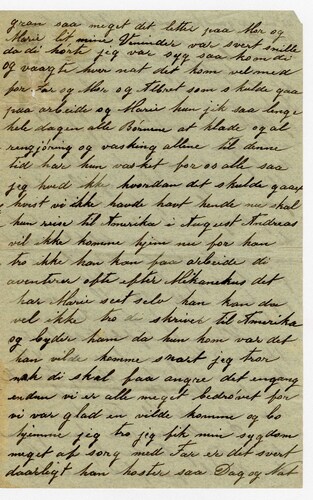 gran saa meget det letter paa Mor og
Marie lit mine Veninder var svert snille
da di hørte jeg var syg saa kom di
og vaagte hver nat det kom vel med
for Far og Mor og Albert som skulde gaa
paa arbeide og Marie hun fik saa lenge
hele dagen alle Børnene at klade og al
rengjøring og vasking allene til denne
tid har hun vasket for os alle saa
jeg ved ikke hvordan det skulde gaaet
hvist vi ikke havde havt hende nu skal
hun reise til Amerika i August Andreas
vil ikke komme hjem nu for han
tro ikke han kan faa arbeide di
efter det
har Marie seet selv han kan da
vel ikke tro de skriver til Amerika
og byder ham da hun kom var det
han vilde komme snart jeg tror
nok di skal faa angre det engang
endnu vi er alle meget bedrøvet for
vi var glad en vilde komme og bo
hjemme jeg tro jeg fik min sygdom
meget af sorg med Far er det svert
daarligt han hoster saa Dag og Nat